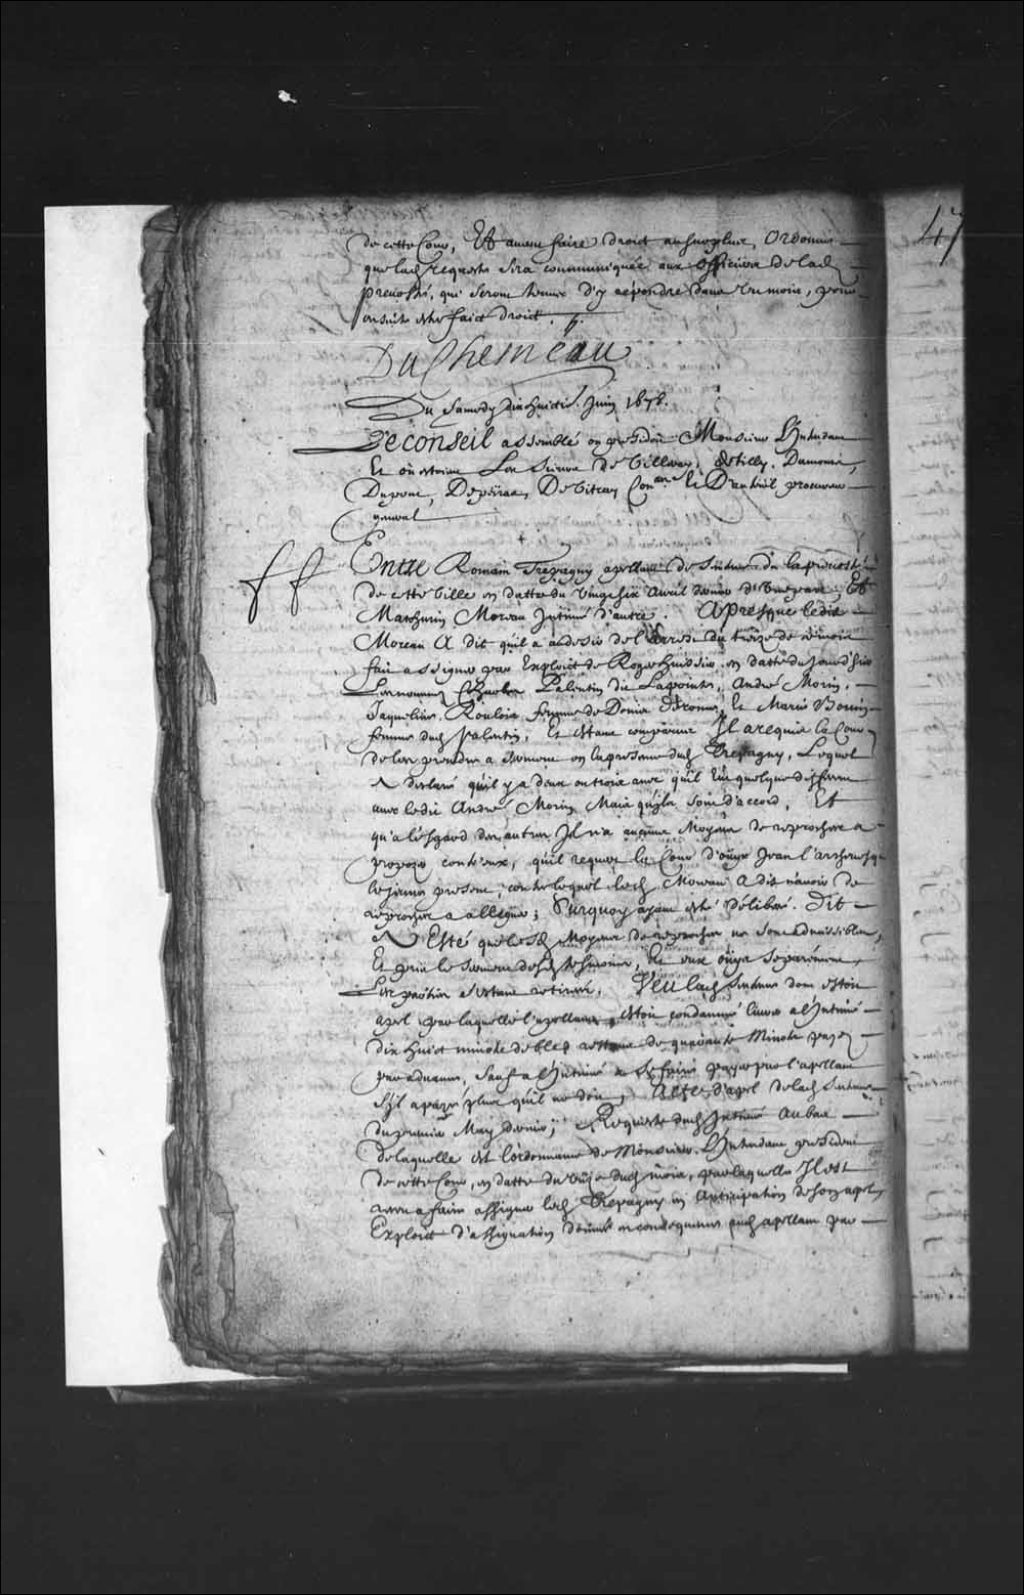 47
de cette Cour, Et avant faire droict au surplus, Ordonne
que lad. requeste sera communiquée aux officiers de lad.
prevosté, qui seront tenus d'y répondre dans un mois, pour
ensuite estre faict droict.
DuChesneau
Du Samedy dix huictie. Juin 1678.
Le conseil assemblé ou presidoit Monsieur L'Intendant
Et ou estoient Les Sieurs de Villeray, de Tilly, Damours,
Dupont, Depeiras, De Vitray Coners. Et D'auteuil procureur
general
Entre Romain Trepagny apellant de Sentence de la prevosté
de cette Ville en datte du vingt six Avril dernier d'une part, Et
Mathurin Moreau Intimé d'autre. Apres que ledit
Moreau A dit qu'il a au desir de l'arrest du treize de ce mois
fait assigner par Exploict de Roger huissier en datte du jour d'hier
Les nommez Charles Palentin dit Lapointe, André Morin,
Jaqueline Rouloix femme de Denis Derome, Et Marie Bonin
femme dud. Palentin, Et estant comparus Il a requis la Cour
de les prendre a serment en la presence dud. Trepagny, Lequel
A declaré qu'il y a deux ou trois ans qu'il eut quelque differend
avec ledit André Morin Mais qu'ils sont d'accord, Et
qu'a l'esgard des autres Il n'a aucuns Moyens de reproches a
proposer contr'eux, qu'il requiert la Cour d'ouyr Jean l'archevesque
le jeune present, contre lequel led. Moreau A dit n'avoir de
reproches a alleguer; Surquoy ayant esté déliberé. Dit
A Esté que lesd. Moyens de reproches ne sont admissibles,
Et pris le serment desd. tesmoins, Et eux ouys separément,
Les parties s'estant retirées. Veu lad. Sentence dont estoit
apel par laquelle l'apellant estoit condamné livrer a l'Intimé
dix huict minots de bled restant de quarante Minots payez
par advance, sauf a l'Intimé a se faire payer par l'apellant
S'il a payé plus qu'il ne doit; Acte d'apel de lad. Sentence
du premier May dernier; Requeste dud. Intimé Au bas
de laquelle est l'ordonnance de Monsieur L'Intendant president
de cette Cour, en datte du dud. mois, par laquelle Il est
permis faire assigner led. Trepagny en Anticipation de son apel,
Exploict d'assignation donné en consequence aud. apellant par